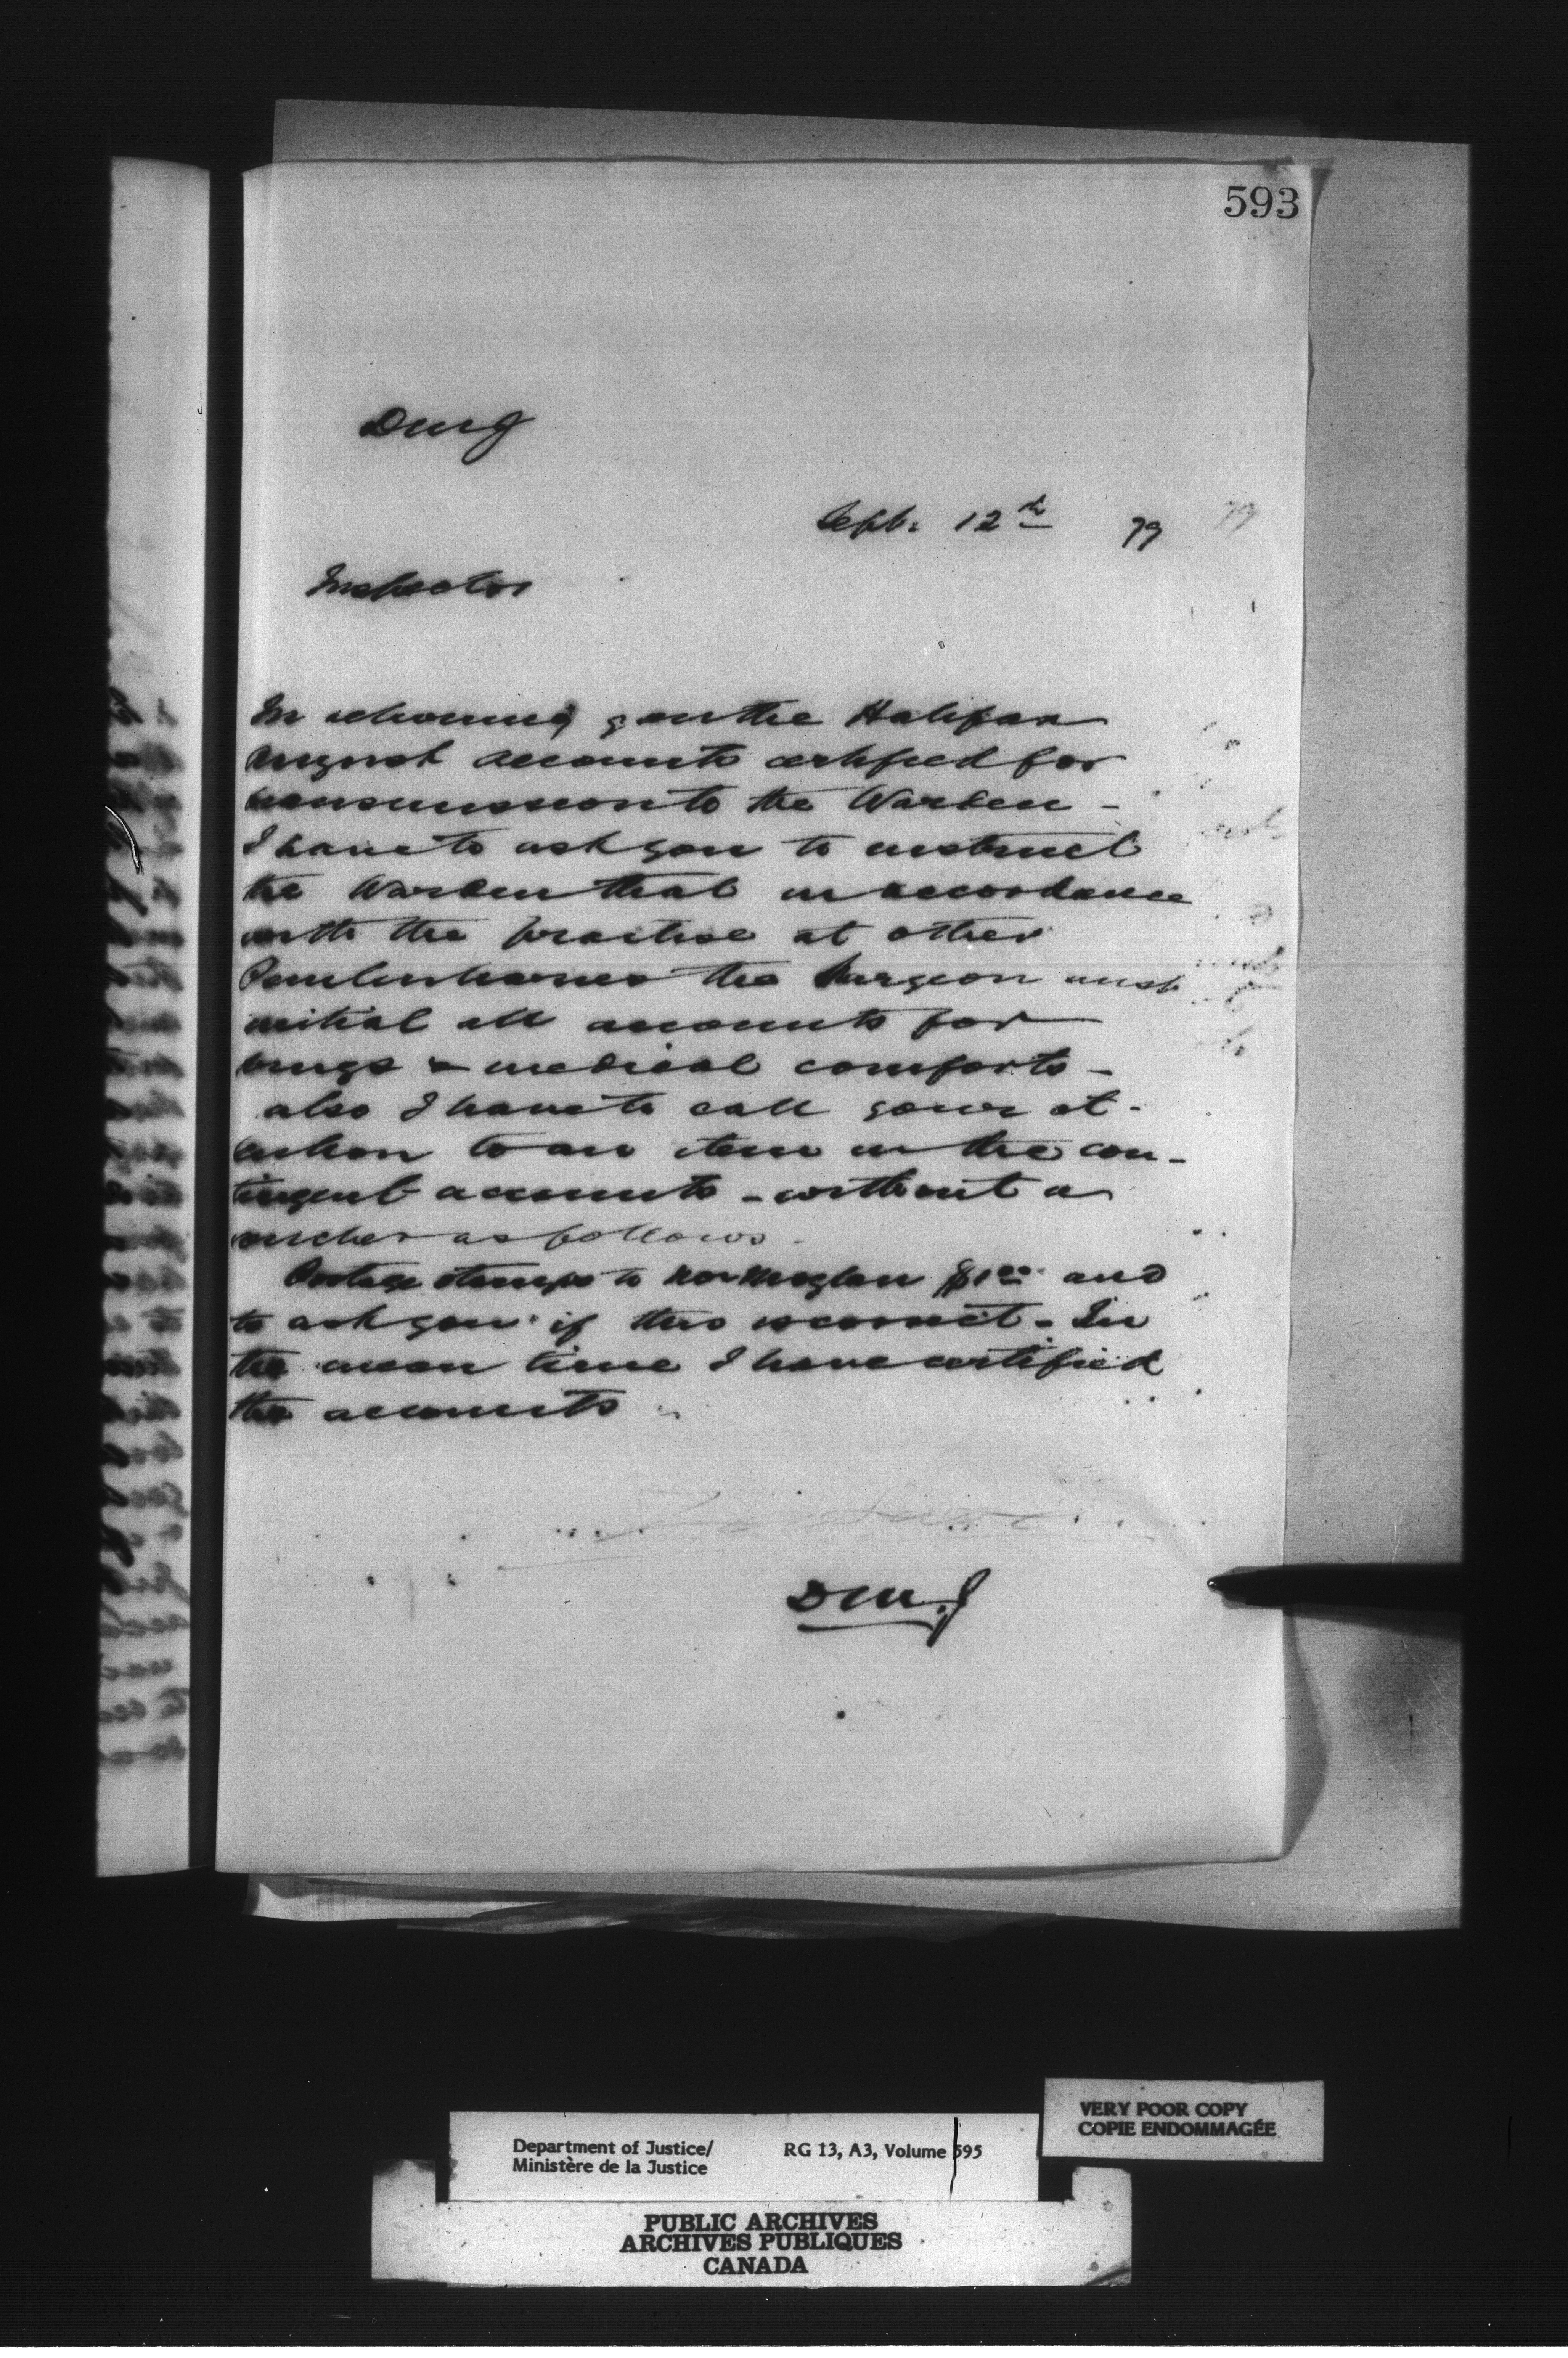 593
DMJ
Sept. 12th 79
Inspector
In returning you the Halifax
August accounts certified for
transmission to the Warden -
I have to ask you to instruct
the Warden that in accordance
with the practise at other
Penitentiaries the Surgeon must
initial all accounts for
drugs & medical comforts -
also I have to call your at-
tention to an item in the con-
tingent accounts - without a
voucher as follows -
Postage stamps to $1.00 and
to ask you if this is correct - In
the mean time I have certified
the accounts
DM.J
VERY POOR COPY
COPIE ENDOMMAGÉE
Department of Justice/ RG 13, A3, Volume 595
Ministère de la Justice
PUBLIC ARCHIVES
ARCHIVES PUBLIQUES
CANADA